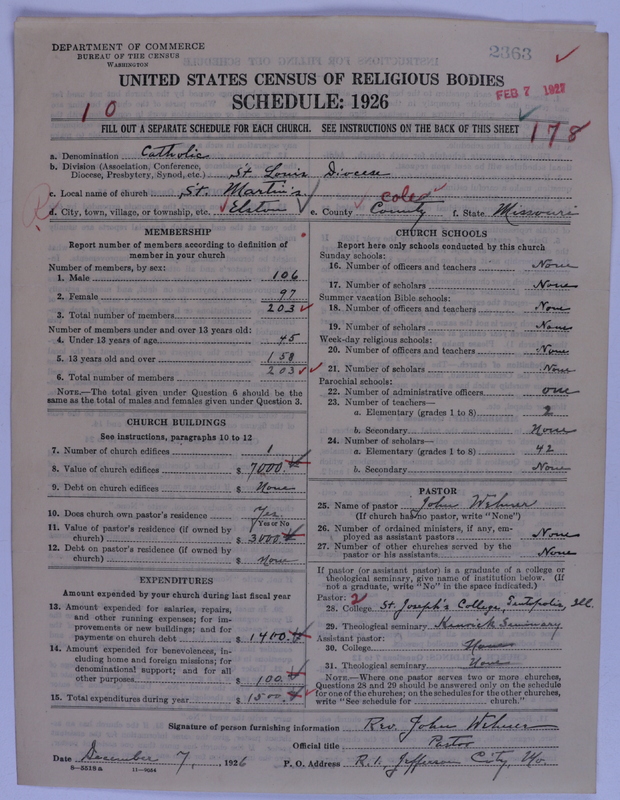 DEPARTMENT OF COMMERCE
BUREAU OF THE CENSUS
WASHINGTON
2363
UNITED STATES CENSUS OF RELIGIOUS BODIES
SCHEDULE: 1926
FEB 7 1927
10
FILL OUT A SEPARATE SCHEDULE FOR EACH CHURCH. SEE INSTRUCTIONS ON THE BACK OF THIS SHEET
178
a. Denomination Catholic
b. Division (Association, Conference, Diocese, Presbytery, Synod, etc.) St. Louis Diocese
c. Local name of church St. Martin's
d. City, town, village, or township, etc. Elston e. County Cole County f. State Missouri
MEMBERSHIP
Report number of members according to definition of member in your church
Number of members, by sex:
1. Male 106
2. Female 97
3. Total number of members 203
Number of members under and over 13 years old:
4. Under 13 years of age 45
5. 13 years old and over 158
6. Total number of members 203
NOTE.—The total given under Question 6 should be the same as the total of males and females given under Question 3.
CHURCH BUILDINGS
See instructions, paragraphs 10 to 12
7. Number of church edifices 1
8. Value of church edifices $ 7000.
9. Debt on church edifices $ None
10. Does church own pastor's residence? Yes.
Yes or No
11. Value of pastor's residence (if owned by church) $ 3000.
12. Debt on pastor's residence (if owned by church) $ None
EXPENDITURES
Amount expended by your church during last fiscal year
13. Amount expended for salaries, repairs, and other running expenses; for improvements or new buildings; and for payments on church debt $ 1400.
14. Amount expended for benevolences, including home and foreign missions; for denominational support; and for all other purposes $ 100.
15. Total expenditures during year $ 1500.
CHURCH SCHOOLS
Report here only schools conducted by this church
Sunday schools:
16. Number of officers and teachers None
17. Number of scholars None
Summer vacation Bible schools:
18. Number of officers and teachers None
19. Number of scholars None
Week-day religious schools:
20. Number of officers and teachers None
21. Number of scholars None
Parochial schools:
22. Number of administrative officers one
23. Number of teachers—
a. Elementary (grades 1 to 8) 2
b. Secondary None
24. Number of scholars—
a. Elementary (grades 1 to 8) 42
b. Secondary None
PASTOR
25. Name of pastor John
(If church has no pastor, write "None")
26. Number of ordained ministers, if any, employed as assistant pastors None
27. Number of other churches served by the pastor or his assistants None
If pastor (or assistant pastor) is a graduate of a college or theological seminary, give name of institution below. (If not a graduate, write "No" in the space indicated.)
Pastor: 2
28. College St. Joseph's College, Ill.
29. Theological seminary Kenrick Seminary
Assistant pastor:
30. College None
31. Theological seminary None
NOTE.—Where one pastor serves two or more churches, Questions 28 and 29 should be answered only on the schedule for one of the churches; on the schedules for the other churches, write "See schedule for church."
Signature of person furnishing information Rev. John
Official title Pastor
Date December 7, 1926 P. O. Address R.1, Jefferson City, Mo.
8-5519a 11-9064